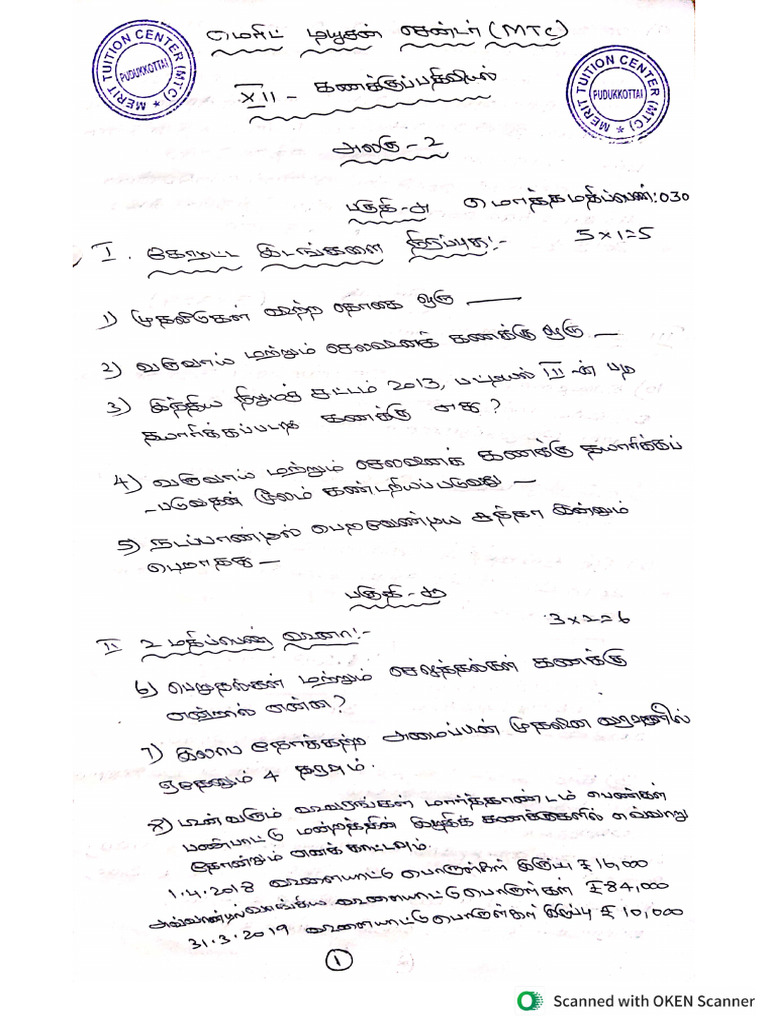 மெரிட் டியூசன் சென்டர் (MTC)
MERIT TUITION CENTER (MTC)
PUDUKKOTTAI
MERIT TUITION CENTER (MTC)
PUDUKKOTTAI
XII - கணக்குப்பதிவியல்
அலகு - 2
பகுதி - அ மொத்தமதிப்பெண்: 030
I. கோடிட்ட இடங்களை நிரப்புக:- 5x1=5
1) முதலீடுகள் விற்ற தொகை ஒரு —
2) வருவாய் மற்றும் செலவினக் கணக்கு ஒரு —
3) இந்திய நிறுமச் சட்டம் 2013, பட்டியல் III -ன் படி
தயாரிக்கப்படும் கணக்கு எது?
4) வருவாய் மற்றும் செலவினக் கணக்கு தயாரிக்கப்
-படுவதன் மூலம் கண்டறியப்படுவது —
5) நடப்பாண்டில் பெறவேண்டிய சந்தா இன்னும்
பெறாதது —
பகுதி - ஆ
II 2 மதிப்பெண் வினா:- 3x2=6
6) பெறுதல்கள் மற்றும் செலுத்தல்கள் கணக்கு
என்றால் என்ன?
7) இலாப நோக்கற்ற அமைப்பின் முதலின வரவுகளில்
ஏதேனும் 4 தரவும்.
8) பின்வரும் விவரங்கள் மார்த்தாண்டம் பெண்கள்
பண்பாட்டு மன்றத்தின் இறுதிக் கணக்குகளில் எவ்வாறு
தோன்றும் எனக் காட்டவும்.
1.4.2018 விளையாட்டு பொருள்கள் இருப்பு ₹ 16,000
அவ்வாண்டில் வாங்கிய விளையாட்டு பொருள்கள் ₹ 84,000
31.3.2019 விளையாட்டு பொருள்கள் இருப்பு ₹ 10,000
1
Scanned with OKEN Scanner